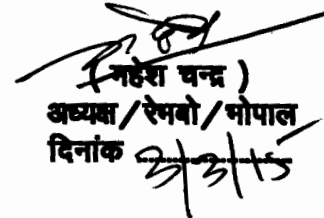 ( महेश चन्द्र )
अध्यक्ष/रेमबो/भोपाल
दिनांक 3/3/15